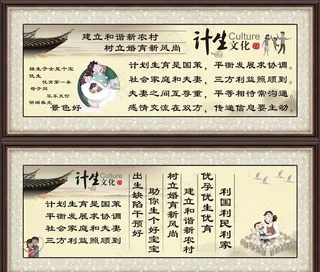 建立和谐新农村
树立婚育新风尚
计生
Culture
文化
独生子女是个宝
优生
优育第一条
母子同
乐乐无忧
明媚春光
景色好
计划生育是国策，
社会家庭和夫妻。
夫妻之间互尊重，
感情交流在双方，
平衡发展求协调。
三方利益照顾到。
平等相待常沟通，
传递信息要主动。
计生
Culture
文化
计划生育是国策
平衡发展求协调
社会家庭和夫妻
三方利益照顾到
出生缺陷干预好
助你生个好宝宝
树立婚育新风尚
建立和谐新农村
优孕优生优育
利国利民利家